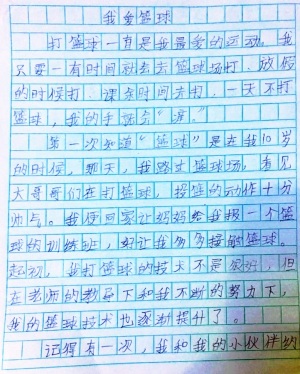 我爱篮球
打篮球一直是我最爱的运动。我
只要一有时间就会去篮球场打，放假
的时候打，课余时间去打，一天不打
篮球，我的手就会“痒”。
第一次知道“篮球”是在我10岁
的时候，那天，我路过篮球场，看见
大哥哥们在打篮球，投篮的动作十分
帅气。我便回家让妈妈给我报一个篮
球的训练班，好让我多多接触篮球。
起初，我打篮球的技术不是很好，但
在老师的教导下和我不断的努力下，
我的篮球技术也逐渐提升了。
记得有一次，我和我的小伙伴约